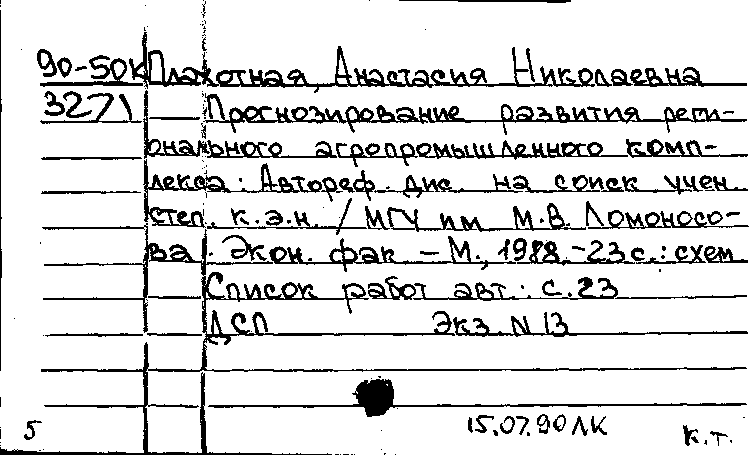 90-50К Плахотная, Анастасия Николаевна
3271 Прогнозирование развития реги-
онального агропромышленного комп-
лекса: Автореф. дис. на соиск учен
степ. к.э.н. / МГУ им М.В. Ломоносо-
ва. Экон. фак. – М., 1988. – 23 с.: схем
Список работ авт.: с. 23
ДСП Экз. N 13
15.07.90 ЛК
5 к.т.